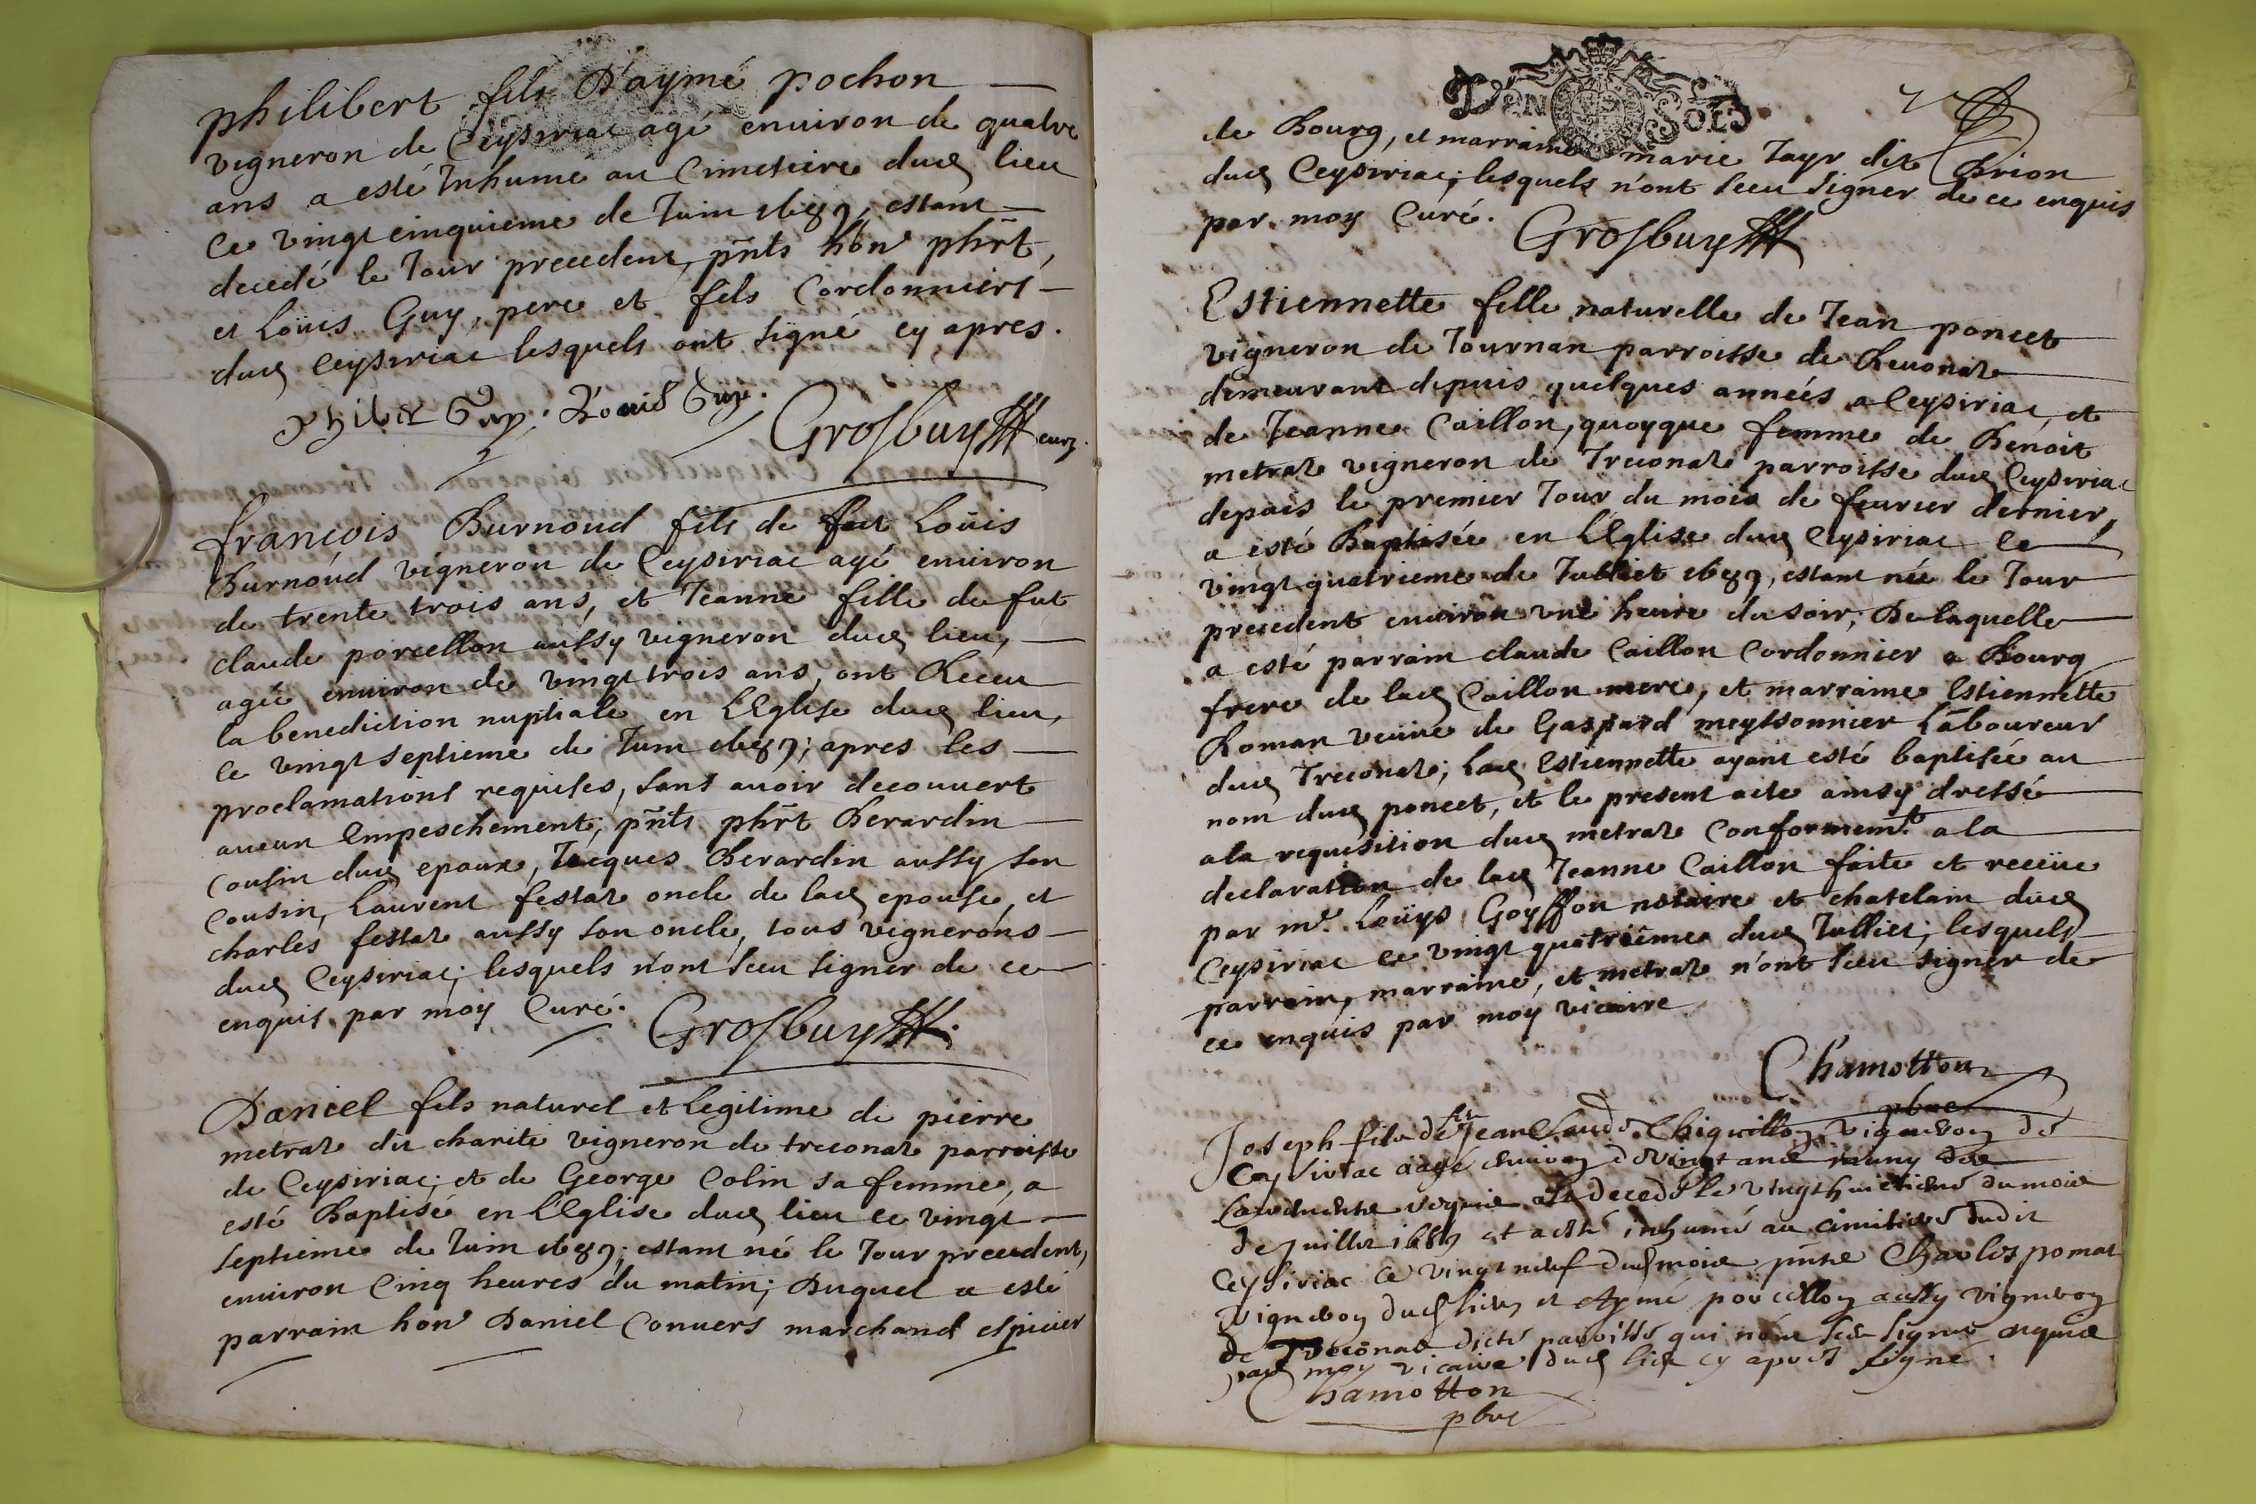 philibert fils D'aymé pochon
vigneron de Ceysiriac agé enuiron de quatre
ans a esté Inhumé au Cimetiere dud lieu
ce vingt cinquieme de Iuin 1689, estant
decedé le Iour precedent, pñts hon phrt,
et Loüis Guy, pere et fils Cordonniers
dud Ceysiriac lesquels ont signé cy apres.
Philibert Guy. Louis Guy.
Grosbuy curé.
françois Burnoud fils de fut Loüis
Burnoud vigneron de Ceysiriac agé enuiron
de trente trois ans, et Ieanne fille de fut
claude porcellon aussy vigneron dud lieu,
agée enuiron de vingt trois ans, ont Receu
la benediction nuptiale en L'Eglise dud lieu,
ce vingt septieme de Iuin 1689; apres les
proclamations requises, sans auoir decouuert
aucun Empeschement; pñts phrt Berardin
cousin dud epoux, Iacques Berardin aussy son
cousin, Laurent festaz oncle de lad epouse, et
charles festaz aussy son oncle, tous vignerons
dud Ceysiriac; lesquels n'ont sceu signer de ce
enquis par moy Curé.
Grosbuy
Daniel fils naturel et Legitime de pierre
metraz dit charité vigneron de treconaz parroisse
de Ceysiriac; et de George Colin sa femme, a
esté Baptisé en L'Eglise dud lieu ce vingt
septieme de Iuin 1689; estant né le Iour precedent,
enuiron Cinq heures du matin; Duquel a esté
parrain hon Daniel Conuers marchand espicier
Vn Sol
de Bourg, et marraine marie Tayr dit Brion
dud Ceysiriac; lesquels n'ont sceu signer de ce enquis
par moy Curé.
Grosbuy
Estiennette fille naturelle de Iean poncet
vigneron de Iournan parroisse de Reuonaz
demeurant depuis quelques années a Ceysiriac, et
de Ieanne Caillon, quoyque femme de Benoit
metraz vigneron de Treconaz parroisse dud Ceysiriac
depuis le premier Iour du mois de feurier dernier,
a esté Baptisée en L'Eglise dud Ceysiriac ce
vingt quatrieme de Iulliet 1689, estant née le Iour
precedent enuiron vne heure du soir; De laquelle
a esté parrain claude Caillon Cordonnier a Bourg
frere de lad Caillon mere, et marraine Estiennette
Roman veuue de Gaspard meyssonnier Laboureur
dud Treconaz; lad Estiennette ayant esté baptisée au
nom dud poncet, et le present acte ainsy dressé
a la requisition dud metraz Conformemt a la
declaration de lad Ieanne Caillon faite et receüe
par me. Loüys Goyffon notaire et chatelain dud
Ceysiriac ce vingt quatrieme dud Iulliet; lesquels
parrain, marraine, et metraz n'ont sceu signer de
ce enquis par moy vicaire
Chamotton
pbre
Joseph fils de fut Jean Claude Chiquillon, vigneron de
Ceysiriac aagé enuiron de vingt ans muny des
sacrements requis est decedé le vingt huictieme du mois
de Juillet 1689 et a esté inhumé au cimitiere dudit
Ceysiriac ce vingt neuf dud mois pnts Charles pomat
vigneron dud lieu et Aymé porcellon aussy vigneron
de Treconas dicte parroisse qui n'ont sceu signer enquis
par moy vicaire dud lieu cy apres signé.
Chamotton
pbre